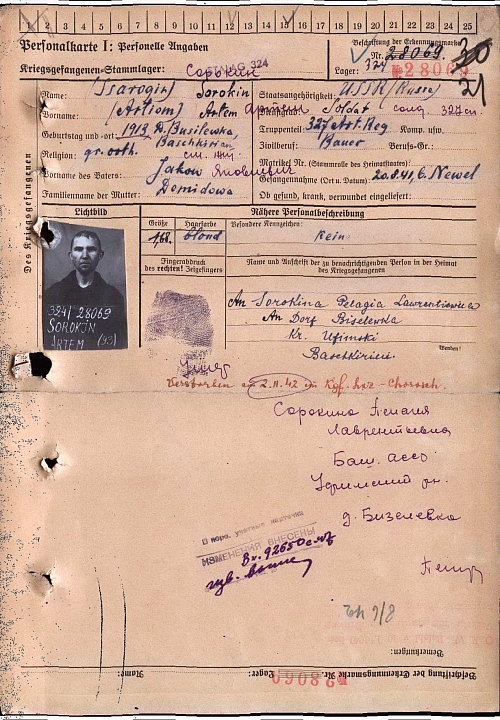 1 2 3 4 5 6 7 8 9 10 11 12 13 14 15 16 17 18 19 20 21 22 23 24 25
Personalkarte I: Personelle Angaben
Beschriftung der Erkennungsmarke
Nr. 28069
Kriegsgefangenen-Stammlager: STALAG 324
Сорокин
Lager: 324
№28069
21
Des Kriegsgefangenen
Name: (Ssarogin) Sorokin
Staatsangehörigkeit: USSR (Russe)
Vorname: (Artiom) Artem Артем
Dienstgrad: Soldat солд. 327 сп.
Geburtstag und -ort: 1913 D. Busilewka,
Baschkirien
Truppenteil: 327 Art. Reg Komp. usw.
Zivilberuf: Bauer Berufs-Gr.:
Religion: gr. orth.
Matrikel Nr. (Stammrolle des Heimatstaates):
Vorname des Vaters: Jakow Яковлевич
Gefangennahme (Ort u. Datum): 20.8.41, b. Newel
Familienname der Mutter: Demidowa
Ob gesund, krank, verwundet eingeliefert:
Lichtbild
Nähere Personalbeschreibung
Größe
Haarfarbe
Besondere Kennzeichen:
1,68
blond
Kein
Fingerabdruck
des rechten! Zeigefingers
Name und Anschrift der zu benachrichtigenden Person in der Heimat
des Kriegsgefangenen
324/28069
SOROKIN
ARTEM (93)
An Sorokina Pelagia Lawrentiewna
An Dorf Biselewka
Kr. Ufimski
Baschkirien.
Wenden!
Verstorben am 2.11.42 im Kgf. Laz-Chorosch.
Сорокина Пелагия
Лаврентьевна
Баш. ассо
Уфимский рн.
д. Бизелевка
ИЗМЕНЕНИЯ ВНЕСЕНЫ
Вх. 92650
Bemerkungen:
Beschriftung der Erkennungsmarke Nr. №28069
Lager:
Name: